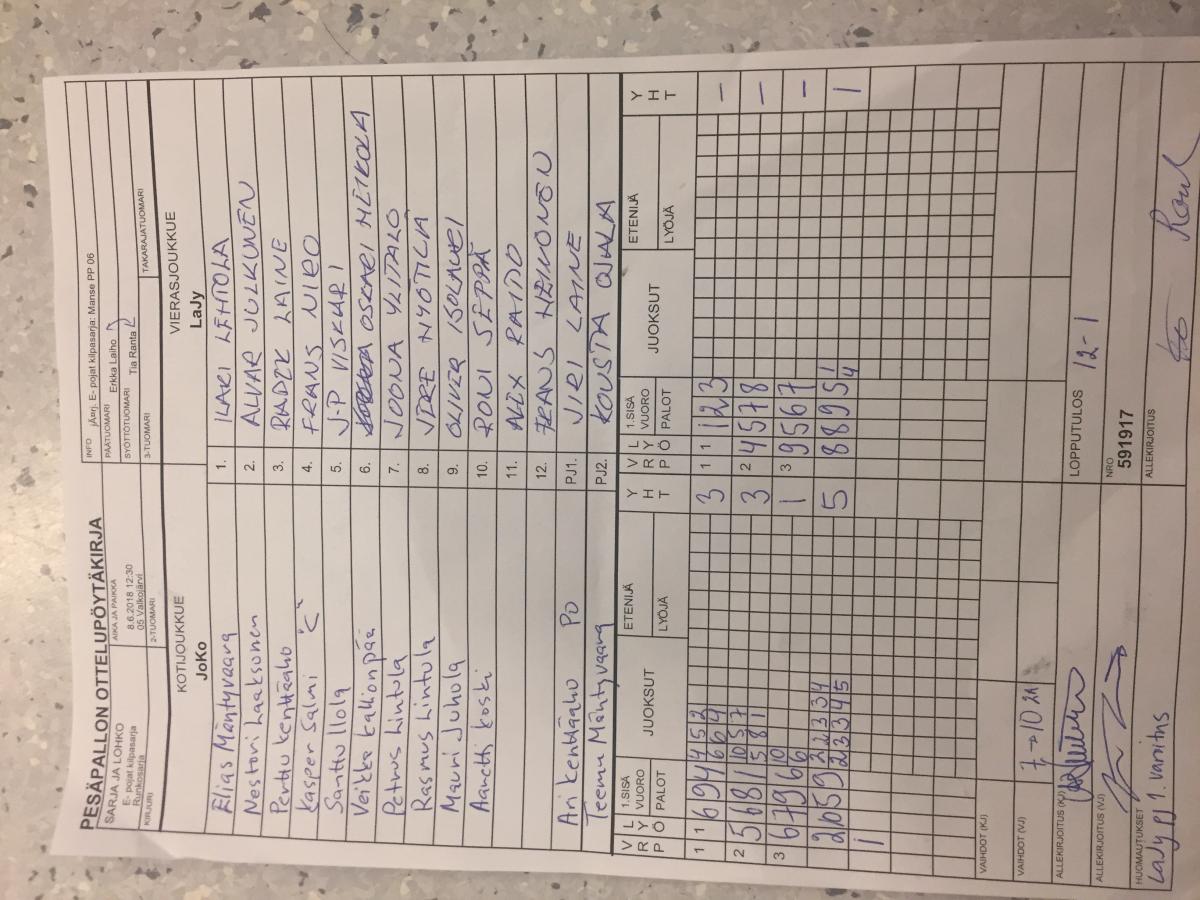 PESÄPALLON OTTELUPÖYTÄKIRJA
INFO jÄärj. E- pojat kilpasarja: Manse PP 06
SARJA JA LOHKO
E- pojat kilpasarja
Runkosarja
AIKA JA PAIKKA
8.6.2018 12:30
05 Valkojärvi
PÄÄTUOMARI Erkka Laiho
SYÖTTÖTUOMARI Tia Ranta
KIRJURI
2-TUOMARI
3-TUOMARI
TAKARAJATUOMARI
KOTIJOUKKUE
JoKo
VIERASJOUKKUE
LaJy
Elias Mäntyvaara 1. ILARI LEHTOLA
Nestori Laaksonen 2. ALVAR JULKUNEN
Perttu Kenttäaho 3. RADEK LAINE
Kasper Salmi "C" 4. FRANS NIRO
Santtu Ilola 5. J-P VISKARI
Veikka Kallionpää 6. OSKARI MÉTKOLA
Petrus Lintula 7. JOONA YLITALO
Rasmus Lintula 8.
Mauri Juhola 9. OLIVER
Aantti Koski 10. RONI SEPPÄ
11. RAITIO
12. FRANS HEINONEN
Ari Kenttäaho PO PJ1. JIRI LAINE
Teemu Mäntyvaara PJ2. KOUSTA OJALA
V R P L Y Ö 1.SISÄ VUORO PALOT JUOKSUT ETENIJÄ LYÖJÄ Y H T V R P L Y Ö 1.SISÄ VUORO PALOT JUOKSUT ETENIJÄ LYÖJÄ Y H T
1 1 6 9 4 4 5 2 3 1 1 1 2 3 –
6 6 4
2 5 6 8 1 10 5 7 3 2 4 5 7 8 –
1 5 8 1
3 6 7 9 6 10 1 3 9 5 6 7 –
6
2 0 5 9 2 2 2 3 4 5 8 8 9 5 1 1
2 3 3 4 5 4
1
VAIHDOT (KJ)
VAIHDOT (VJ) 7 → 10 2A
ALLEKIRJOITUS (KJ)
LOPPUTULOS 12-1
ALLEKIRJOITUS (VJ)
NRO
591917
HUOMAUTUKSET
LaJy PJ 1. varoitus
ALLEKIRJOITUS